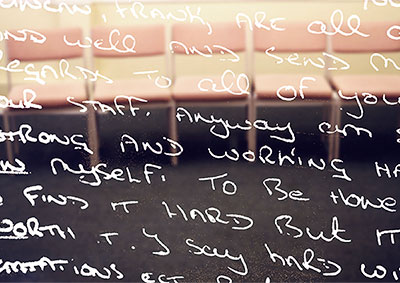 FRANK, ARE all
AND well AND SEND M
Regards To all of you
OUR STAFF. Anyway can
STRONG AND WORKING HA
myself. To Be Hone
FIND IT HARD But IT
WORTH IT. y say HARD wi
ETATIONS ECT